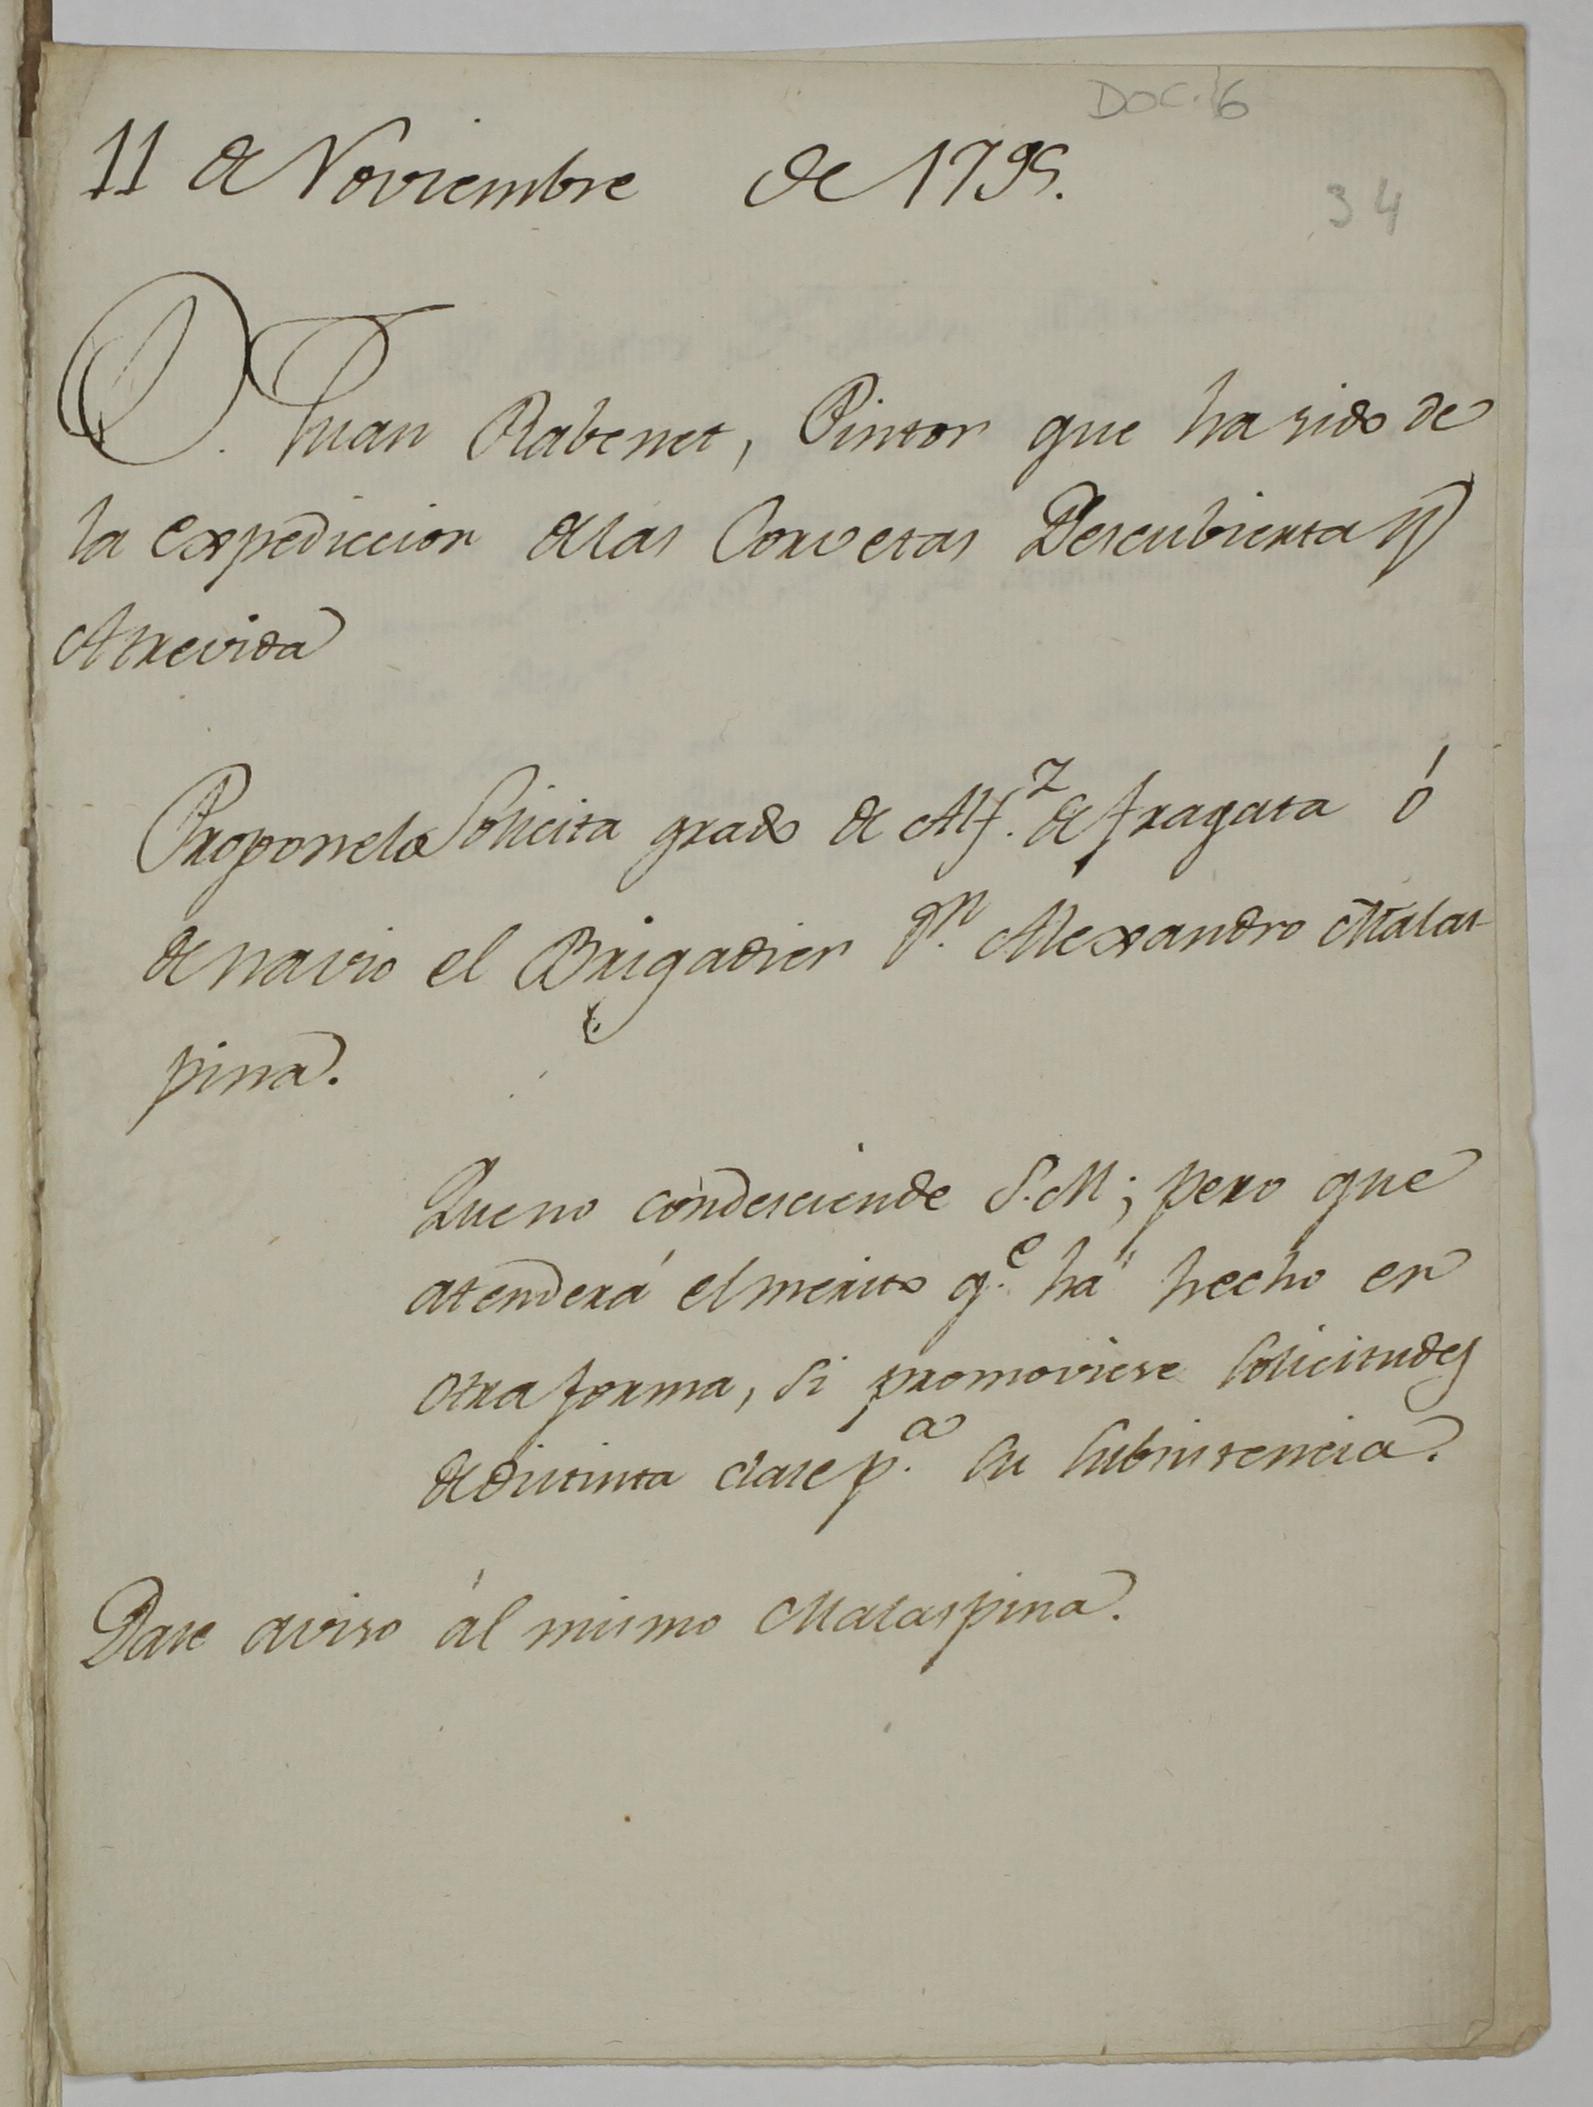 DOC. 6
34
11 de Noviembre de 1795.
D. Juan Rabenet, Pintor que ha sido de
la expediccion de las Corvetas Descubierta y
Atrevida
Solicita grado de Alf.z de fragata ó
de navio el Brigadier D.n Alexandro Malas-
pina.
Que no condesciende S.M; pero que
atenderá el merito q.e há hecho en
otra forma, si promoviese solicitudes
de distinta clase p.a su subsistencia.
Dase aviso ál mismo Malaspina.